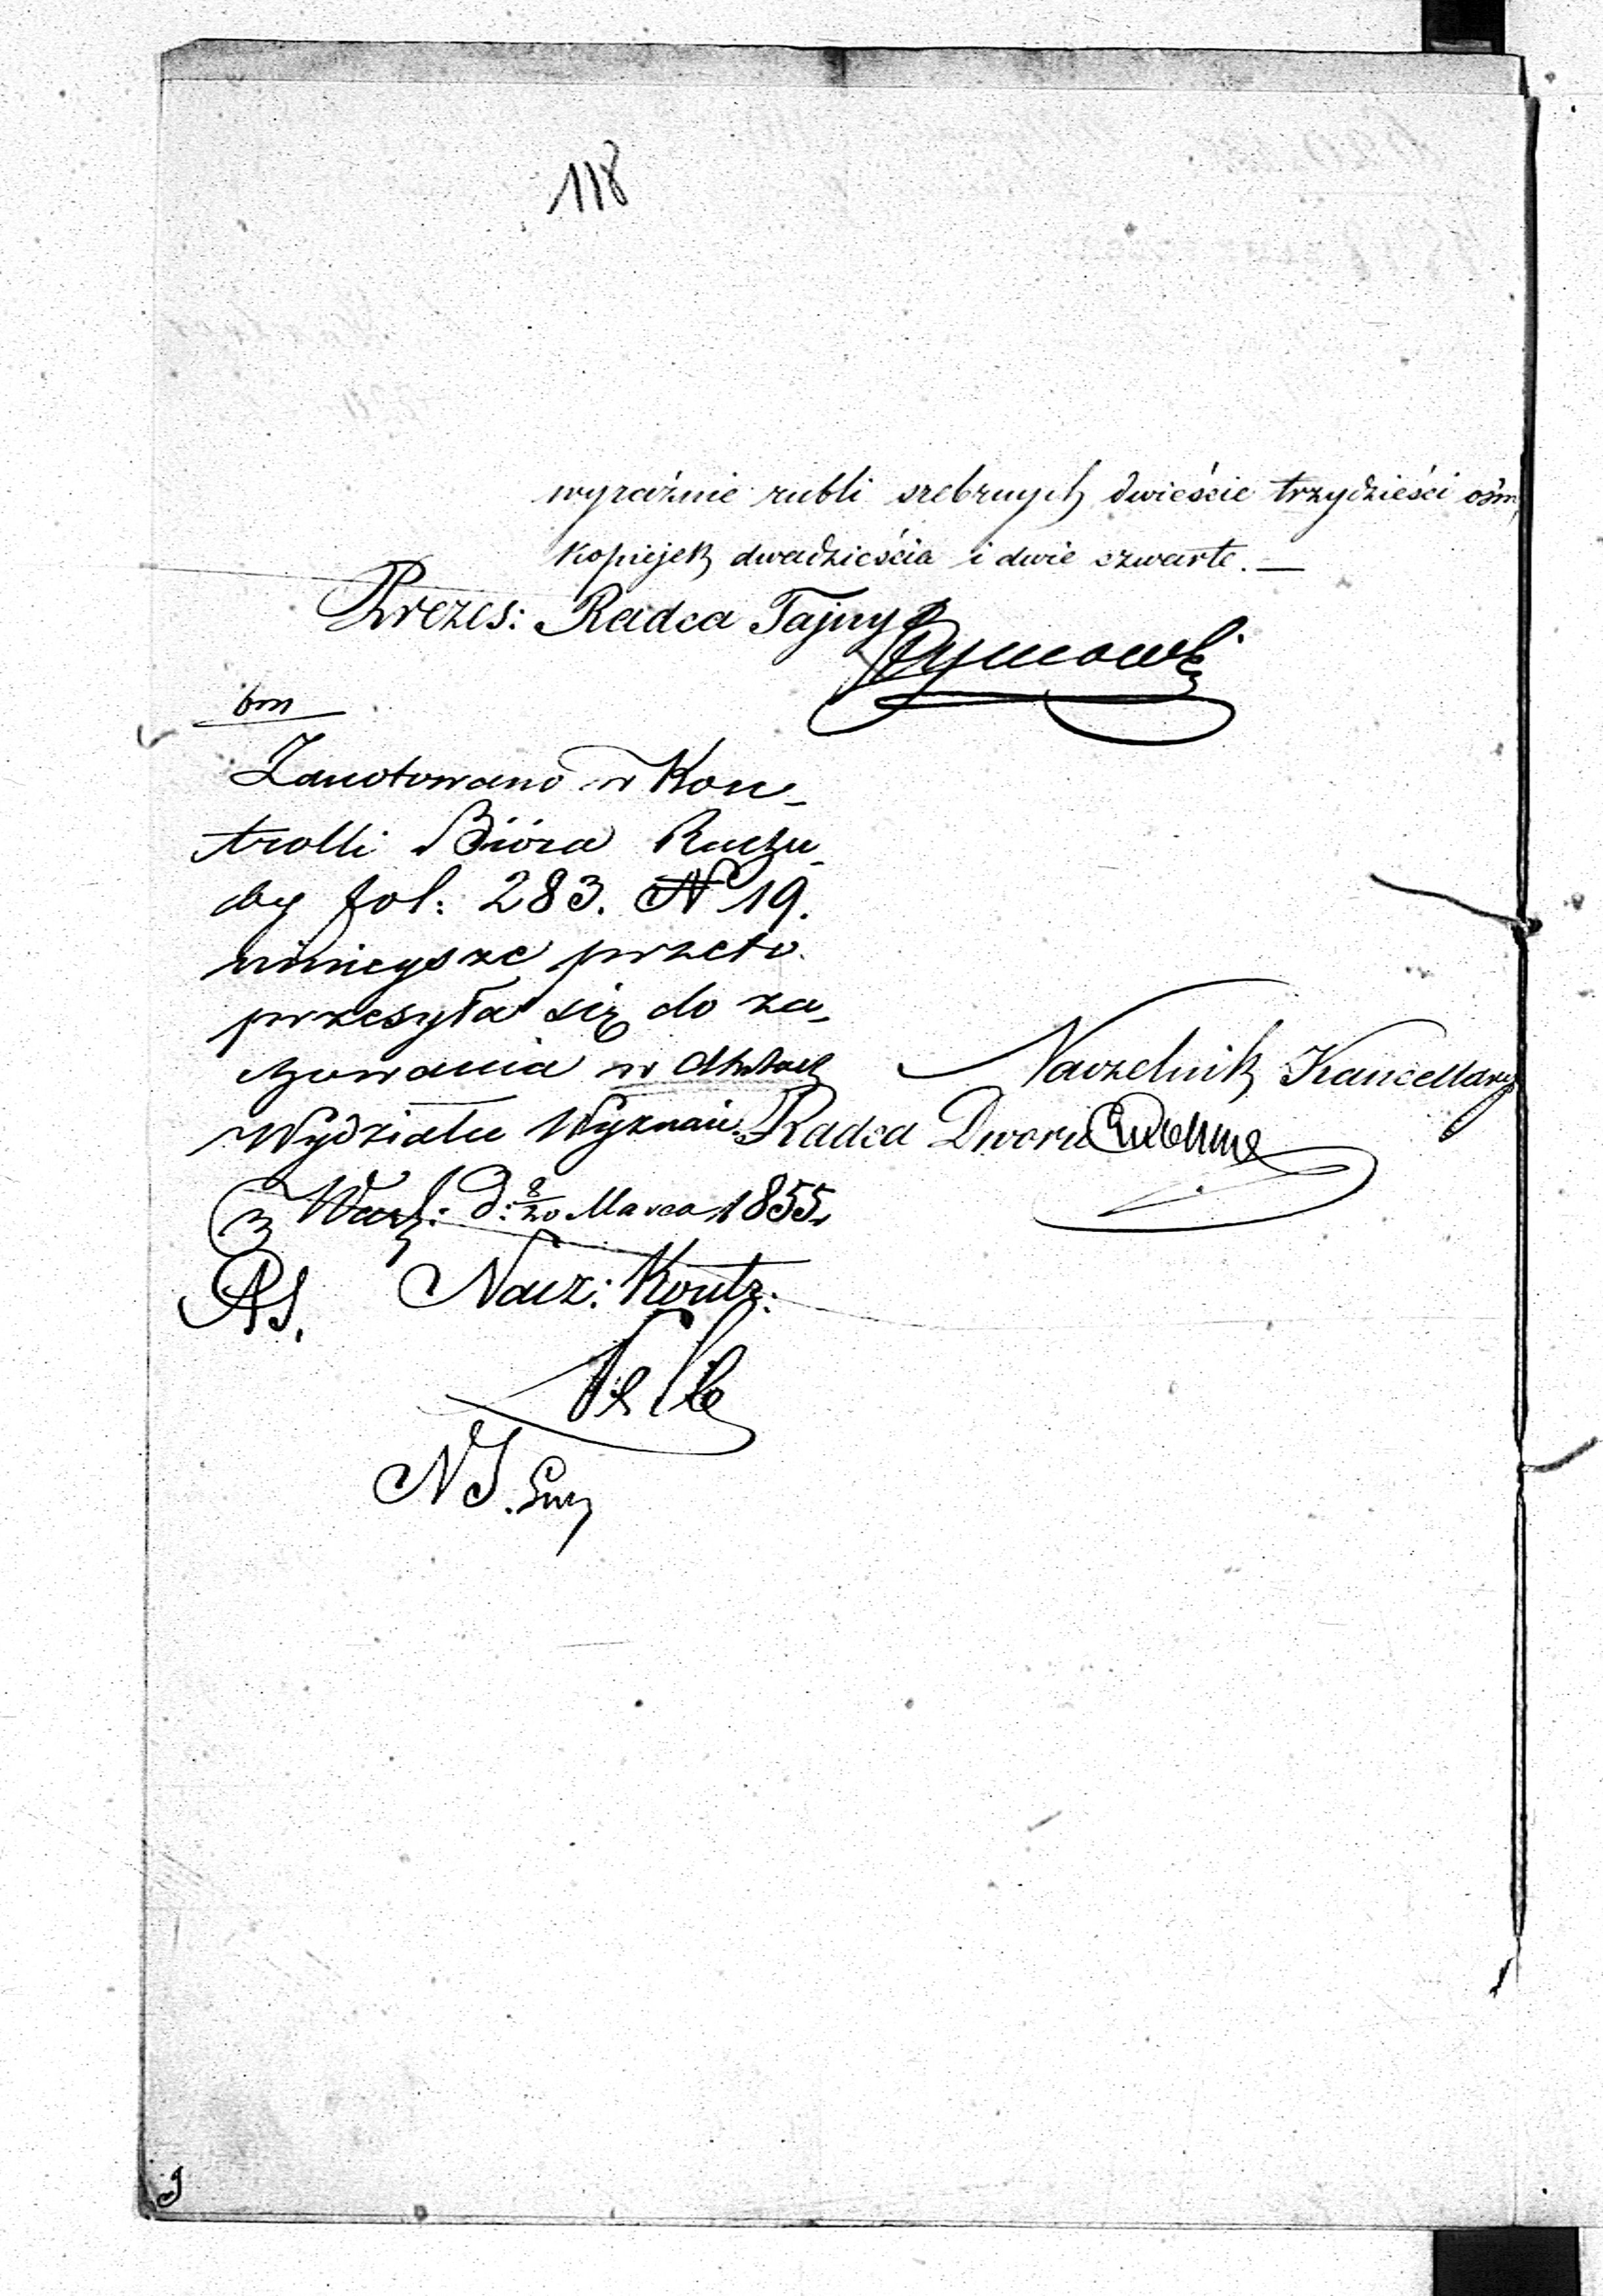 118
wyraźnie rubli srebrnych dwieście trzydzieści ośm,
kopiejek dwadzieścia i dwie czwarte. —
Prezes: Radca Tajny
bm
Zanotowano w Kon-
trolli Bióra Rachu-
by fol: 283. N 19.
niniejsze przeto
przesyła się do za-
chowania w Aktach
Wydziału Wyznań.
z Warsz: d: 8/20 Marca 1855.
Naczelnik Kancellaryi
Radca Dworu
Nacz: Kontr: